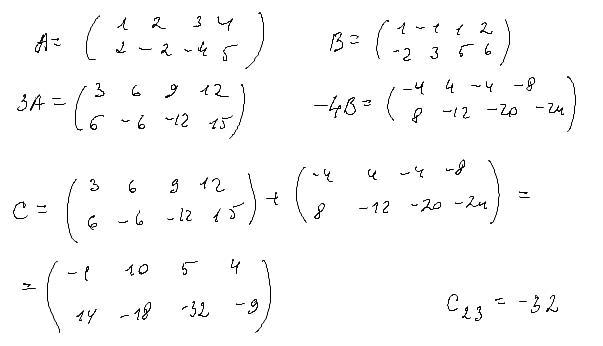 A = ( 1 2 3 4
2 -2 -4 5 )
B = ( 1 -1 1 2
-2 3 5 6 )
3A = ( 3 6 9 12
6 -6 -12 15 )
-4B = ( -4 4 -4 -8
8 -12 -20 -24 )
C = ( 3 6 9 12
6 -6 -12 15 ) + ( -4 4 -4 -8
8 -12 -20 -24 ) =
= ( -1 10 5 4
14 -18 -32 -9 )
C23 = -32